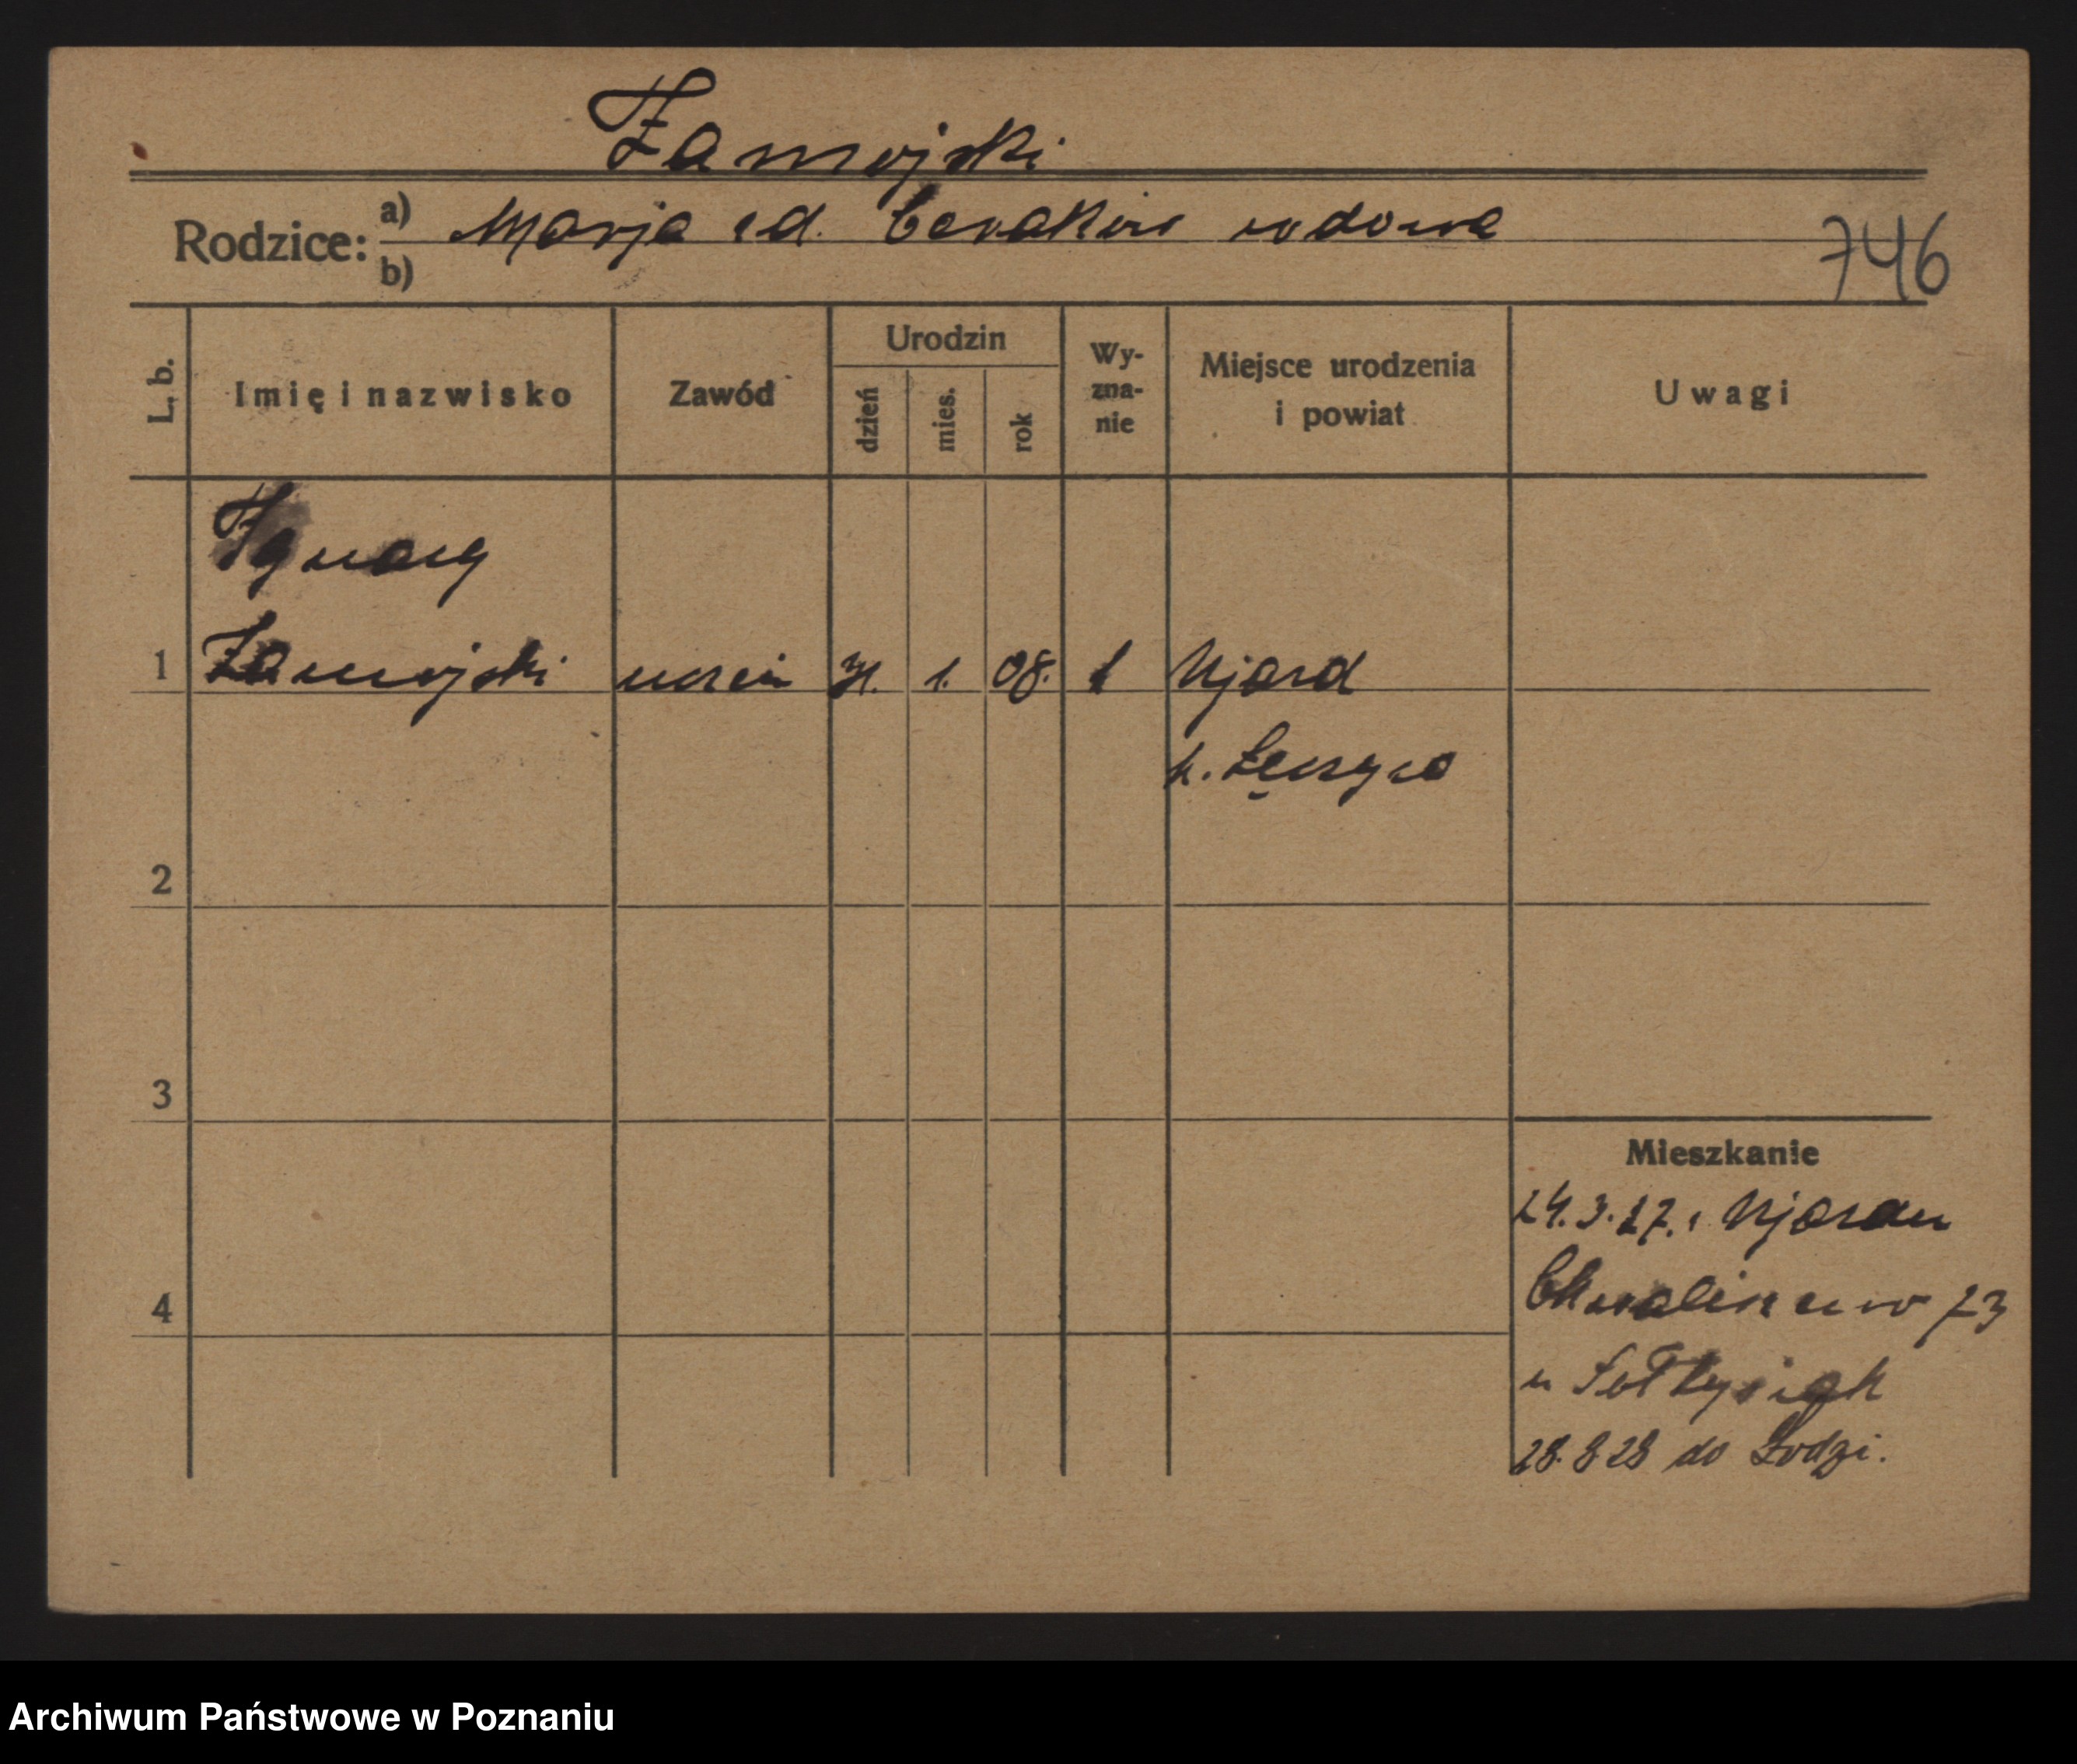 Zamojski
Rodzice: a) Marja zd. Ceraków wdowa
b)
746
L. b.
Imię i nazwisko
Zawód
Urodzin
dzień
mies.
rok
Wy-
zna-
nie
Miejsce urodzenia
i powiat
Uwagi
Ignacy
1 Zamojski uczeń 31. 1. 08. k Ujazd
p. Łęczyca
2
3
4
Mieszkanie
24.3.27. z Ujazdu
73
u
28.8 28 do Łodzi.
Archiwum Państwowe w Poznaniu